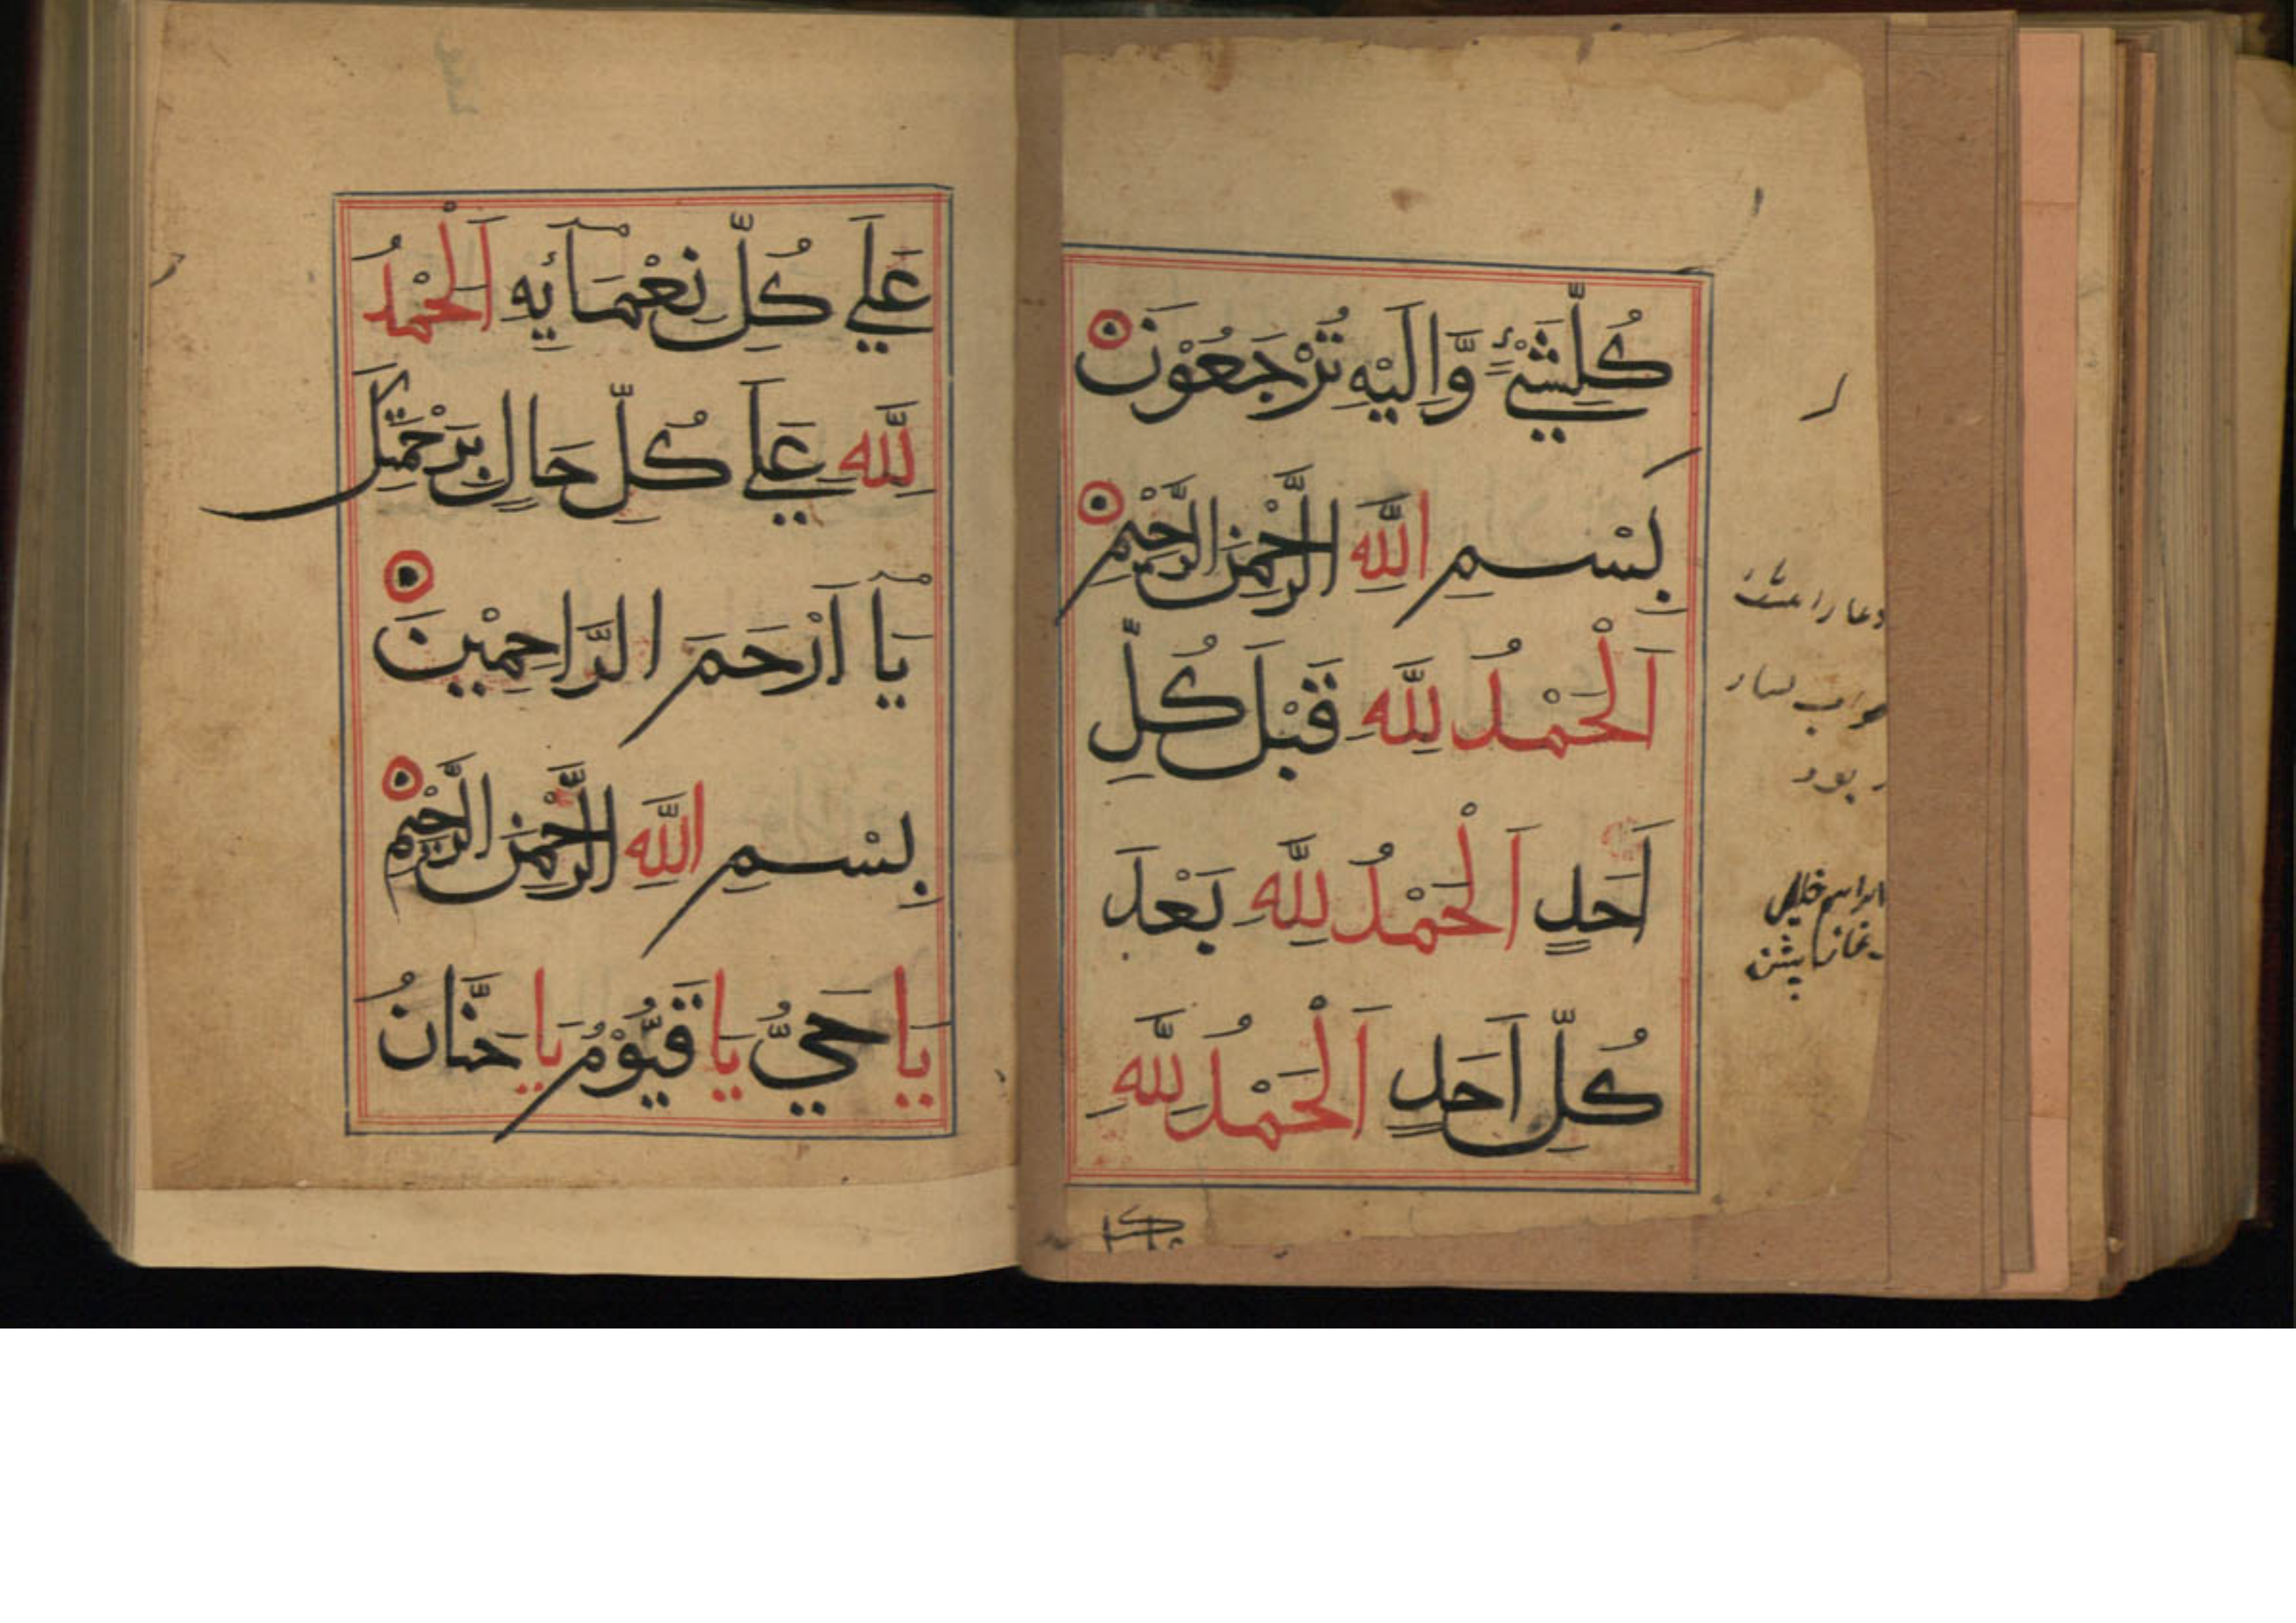 كُلِّشَيْءٍ وَّاِلَيْهِ تُرْجَعُوْنَ
بِسْمِ اللّٰهِ الرَّحْمٰنِ الرَّحِيْمِ
اَلْحَمْدُ لِلّٰهِ قَبْلَ كُلِّ
اَحَدٍ اَلْحَمْدُ لِلّٰهِ بَعْدَ
كُلِّ اَحَدٍ اَلْحَمْدُ لِلّٰهِ
دعا را
بود
ابراهیم خلیل
نماز پیشن
عَلَي كُلِّ نِعْمَآئِهِ اَلْحَمْدُ
لِلّٰهِ عَلَي كُلِّ حَالٍ بِرَحْمَتِكَ
يَآ اَرْحَمَ الرَّاحِمِيْنَ
بِسْمِ اللّٰهِ الرَّحْمٰنِ الرَّحِيْمِ
يَا حَيُّ يَا قَيُّوْمُ يَا حَنَّانُ